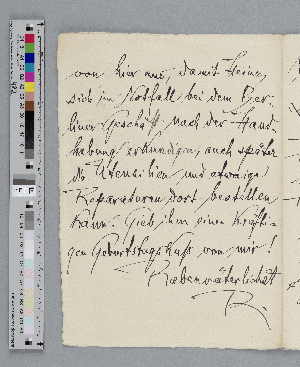 von hier aus, damit Heinz
sich im Notfall bei dem Ber-
liner Geschäft nach der Hand-
habung erkundigen, auch später
die Utensilien und etwaige
Reparaturen dort bestellen
kann. Gieb ihm einen kräfti-
gen Geburtstagskuß von mir!
Rabenväterlichst
R.